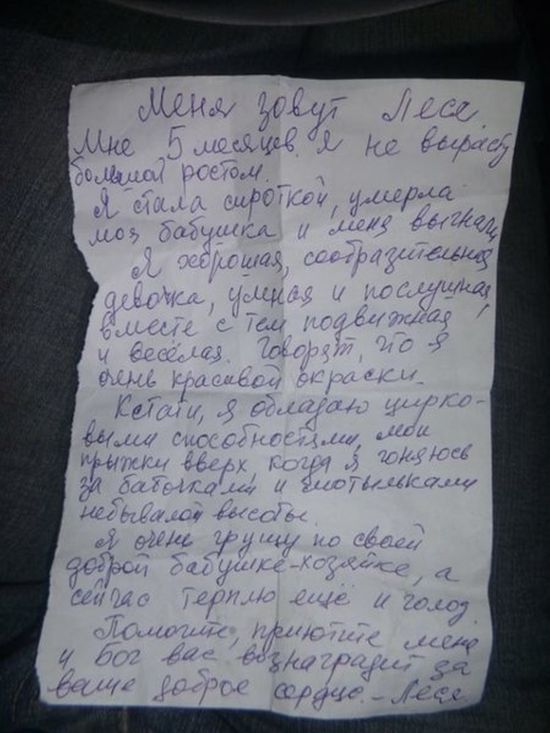 Меня зовут Леся.
Мне 5 месяцев. я не вырасту
большой ростом.
Я стала сироткой, умерла
моя бабушка и меня выгнали
Я хорошая, сообразительная
девочка, умная и послушная,
вместе с тем подвижная
и весёлая. Говорят, что я
очень красивой окраски.
Кстати, я обладаю цирко-
выми способностями, мои
прыжки вверх когда я гоняюсь
за баточками и мотыльками
небывалой высоты.
Я очень грущу по своей
доброй бабушке-хозяйке, а
сейчас терплю ещё и голод.
Помогите, приютите меня
и Бог вас вознаградит за
ваше доброе сердце. - Леся